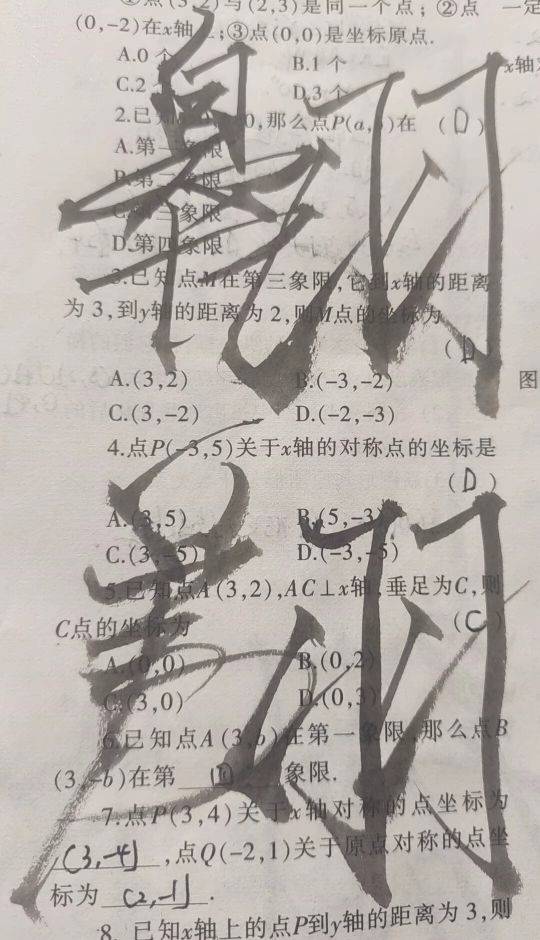 ①点(3,2)与(2,3)是同一个点;②点 一定
(0,-2)在x轴上;③点(0,0)是坐标原点.
A.0个 B.1个 x轴对
C.2个 D.3个
2.已知 0,那么点P(a,b)在 (D)
A.第一象限
B.第二象限
C.第三象限
D.第四象限
3.已知点M在第三象限,它到x轴的距离
为3,到y轴的距离为2,则M点的坐标为
(D
A.(3,2) B.(-3,-2) 图
C.(3,-2) D.(-2,-3)
4.点P(-3,5)关于x轴的对称点的坐标是
(D)
A.(3,5) B.(5,-3)
C.(3,-5) D.(-3,-5)
5.已知点A(3,2),AC⊥x轴,垂足为C,则
C点的坐标为 (C)
A.(0,0) B.(0,2)
C.(3,0) D.(0,3)
6.已知点A(3,b)在第一象限,那么点B
(3,-b)在第 四 象限.
7.点P(3,4)关于x轴对称的点坐标为
(3,-4) ,点Q(-2,1)关于原点对称的点坐
标为 (2,-1) .
8. 已知x轴上的点P到y轴的距离为3,则